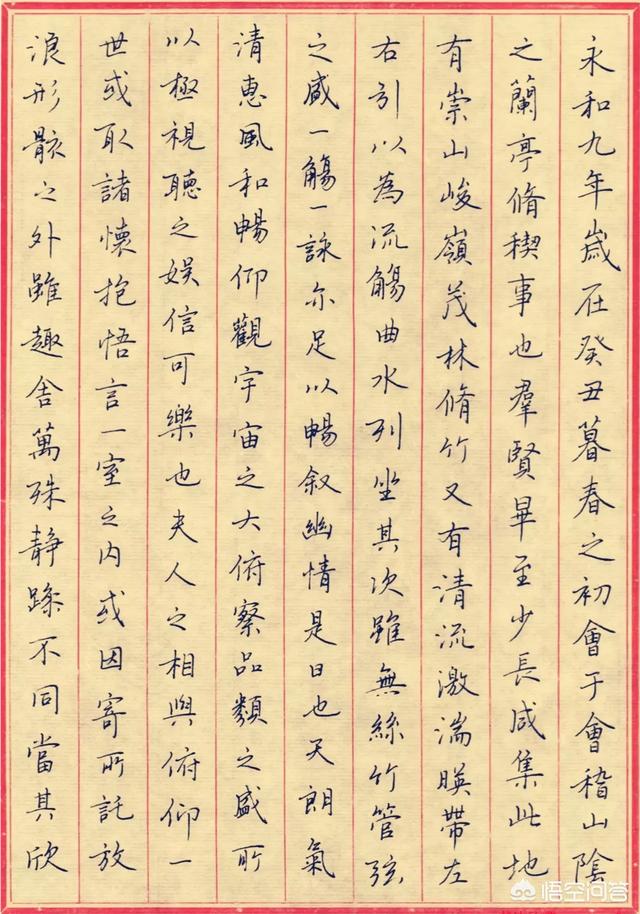 永和九年歲在癸丑暮春之初會于會稽山陰
之蘭亭脩稧事也羣賢畢至少長咸集此地
有崇山峻嶺茂林脩竹又有清流激湍暎帶左
右引以為流觴曲水列坐其次雖無絲竹管弦
之盛一觴一詠亦足以暢敘幽情是日也天朗氣
清惠風和暢仰觀宇宙之大俯察品類之盛所
以極視聽之娛信可樂也夫人之相與俯仰一
世或取諸懷抱悟言一室之內或因寄所託放
浪形骸之外雖趣舎萬殊静躁不同當其欣
悟空问答